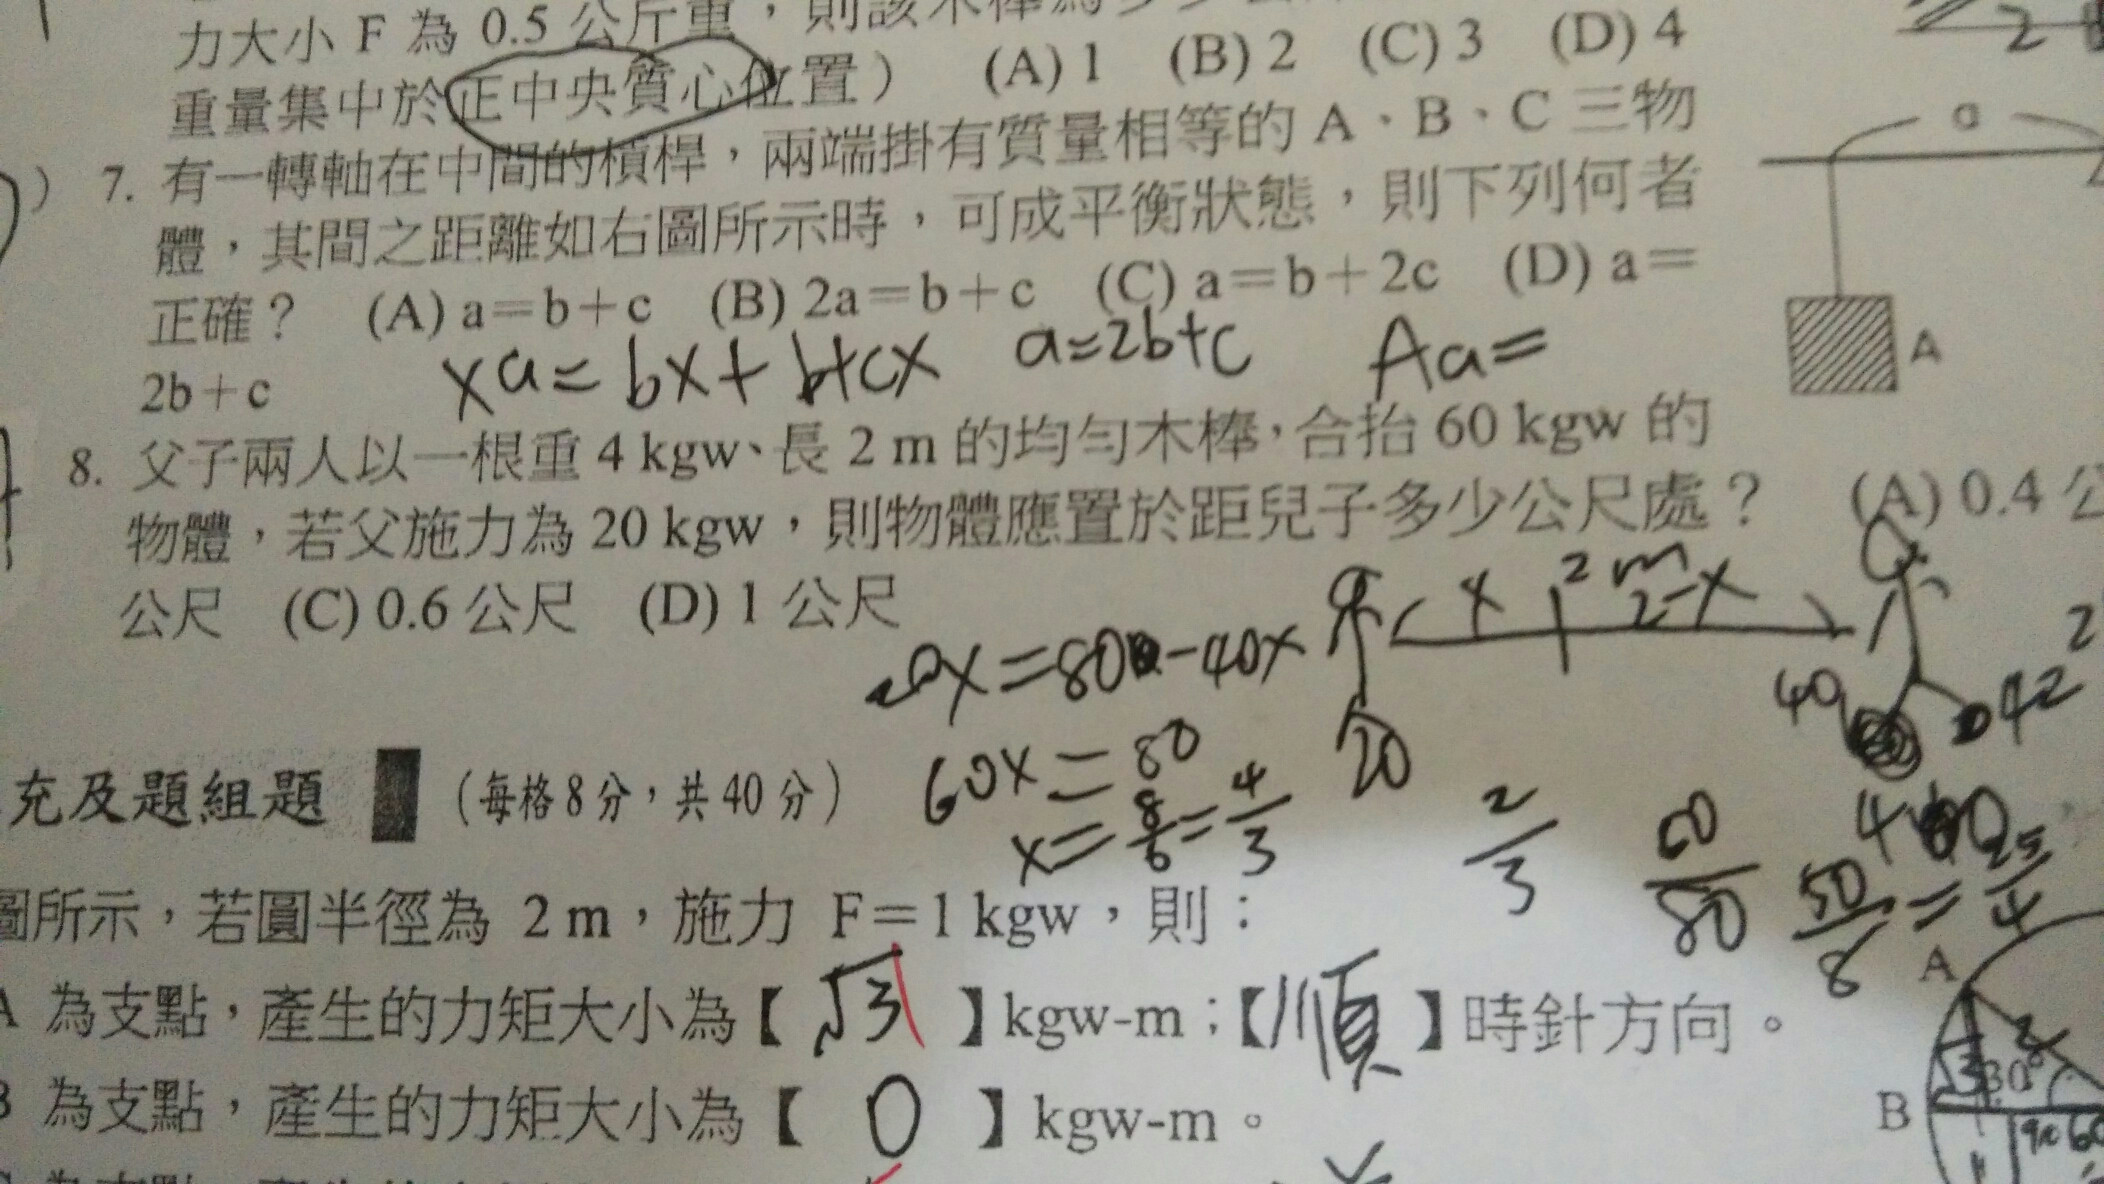 力大小 F 為 0.5 公斤重，則該木棒為多少
重量集中於正中央質心位置） (A) 1 (B) 2 (C) 3 (D) 4
7. 有一轉軸在中間的槓桿，兩端掛有質量相等的 A、B、C 三物
體，其間之距離如右圖所示時，可成平衡狀態，則下列何者
正確？ (A) a＝b＋c (B) 2a＝b＋c (C) a＝b＋2c (D) a＝
2b＋c
xa=bx+b+cx a=2b+c Aa=
a
A
8. 父子兩人以一根重 4 kgw、長 2 m 的均勻木棒，合抬 60 kgw 的
物體，若父施力為 20 kgw，則物體應置於距兒子多少公尺處？ (A) 0.4 公
公尺 (C) 0.6 公尺 (D) 1 公尺
x 2m 2-x
20x=80-40x
40 42
60x=80 20
x=8/6=4/3 2/3
50/8=25/4
充及題組題 （每格 8 分，共 40 分）
圖所示，若圓半徑為 2 m，施力 F＝1 kgw，則：
A 為支點，產生的力矩大小為【√3】kgw-m；【順】時針方向。
B 為支點，產生的力矩大小為【0】kgw-m。
A
2
30°
B